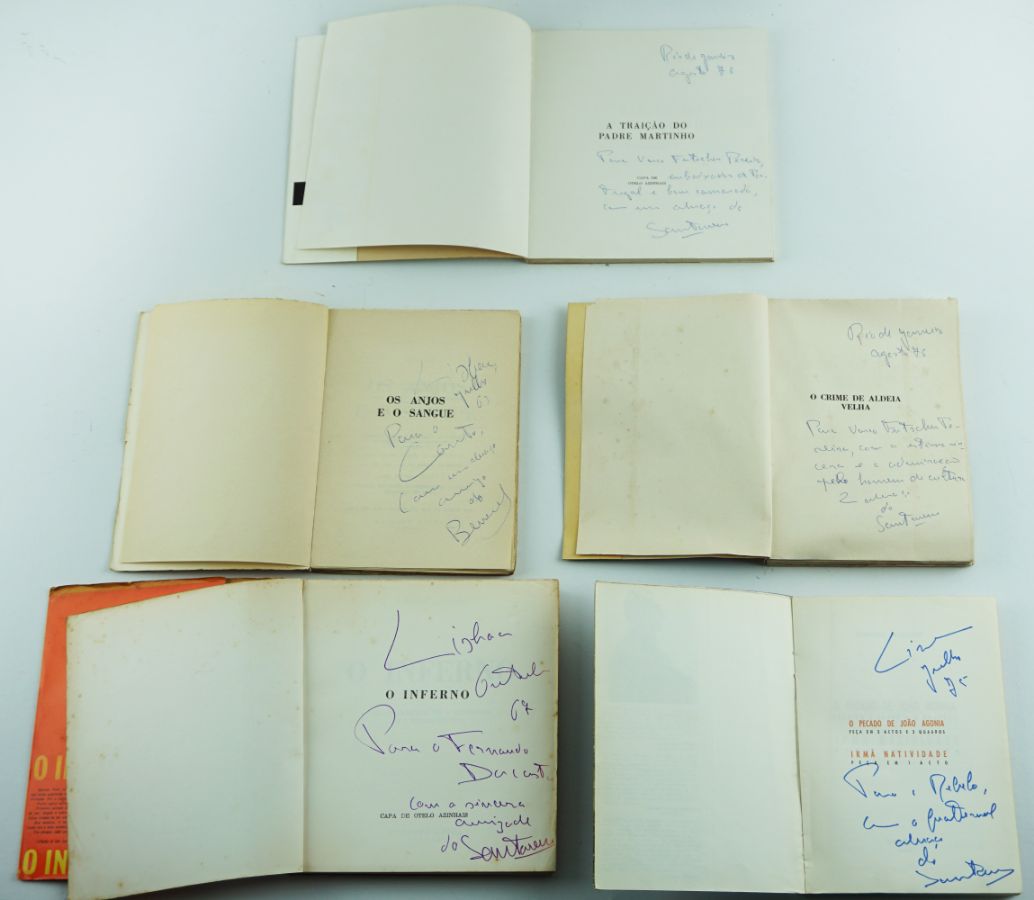 Rio de Janeiro
agosto 76
A TRAIÇÃO DO
PADRE MARTINHO
Para Vasco Futscher Pereira,
CAPA DE
OTELO AZINHAIS
embaixador de Por-
tugal e bom camarada,
com um abraço do
Santareno
OS ANJOS
E O SANGUE
julho
Para o
com um abraço
amigo
do
O CRIME DE ALDEIA
VELHA
Rio de Janeiro
agosto 76
Para Vasco Futscher Pe-
reira, com a estima sin-
cera e a admiração
pelo homem de cultura
abraço
do
Santareno
Lisboa
67
O INFERNO
Para o Fernando
com a sincera
amizade
do Santareno
CAPA DE OTELO AZINHAIS
O IN
O IN
julho
O PECADO DE JOÃO AGONIA
PEÇA EM 3 ACTOS E 5 QUADROS
IRMÃ NATIVIDADE
PEÇA EM 1 ACTO
Para o Rebelo,
com o fraternal
abraço
do
Santareno